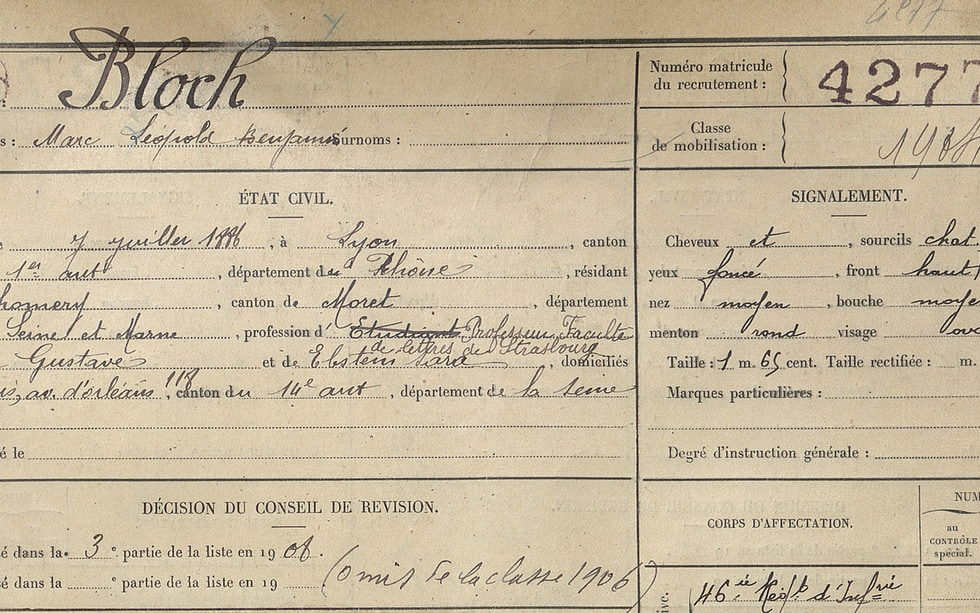 4277
Bloch
Numéro matricule
du recrutement :
4277
s : Marc Léopold Benjamin Surnoms :
Classe
de mobilisation :
ÉTAT CIVIL.
SIGNALEMENT.
7 juillet 1886, à Lyon, canton
Cheveux et, sourcils chat.
1er arrt, département du Rhône, résidant
yeux foncé, front haut
homery, canton de Moret, département
nez moyen, bouche moye
Seine et Marne, profession d' Etudiant Professeur Faculté
de lettres de Strasbourg
menton rond visage ova
Gustave et de Ebstein Sara, domiciliés
Taille : 1 m. 65 cent. Taille rectifiée : m.
is, av. d'orléans 118, canton du 14e arrt, département de la Seine
Marques particulières :
é le
Degré d'instruction générale :
DÉCISION DU CONSEIL DE REVISION.
CORPS D'AFFECTATION.
NUM
au
CONTRÔLE
spécial.
é dans la 3 e partie de la liste en 1908.
é dans la e partie de la liste en 19 (Omis de la classe 1906)
ive.
46ie Régt d'Infrie